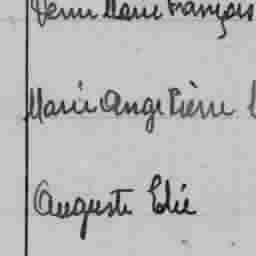 Marie François
Marie Ange Pierre
Auguste Elie